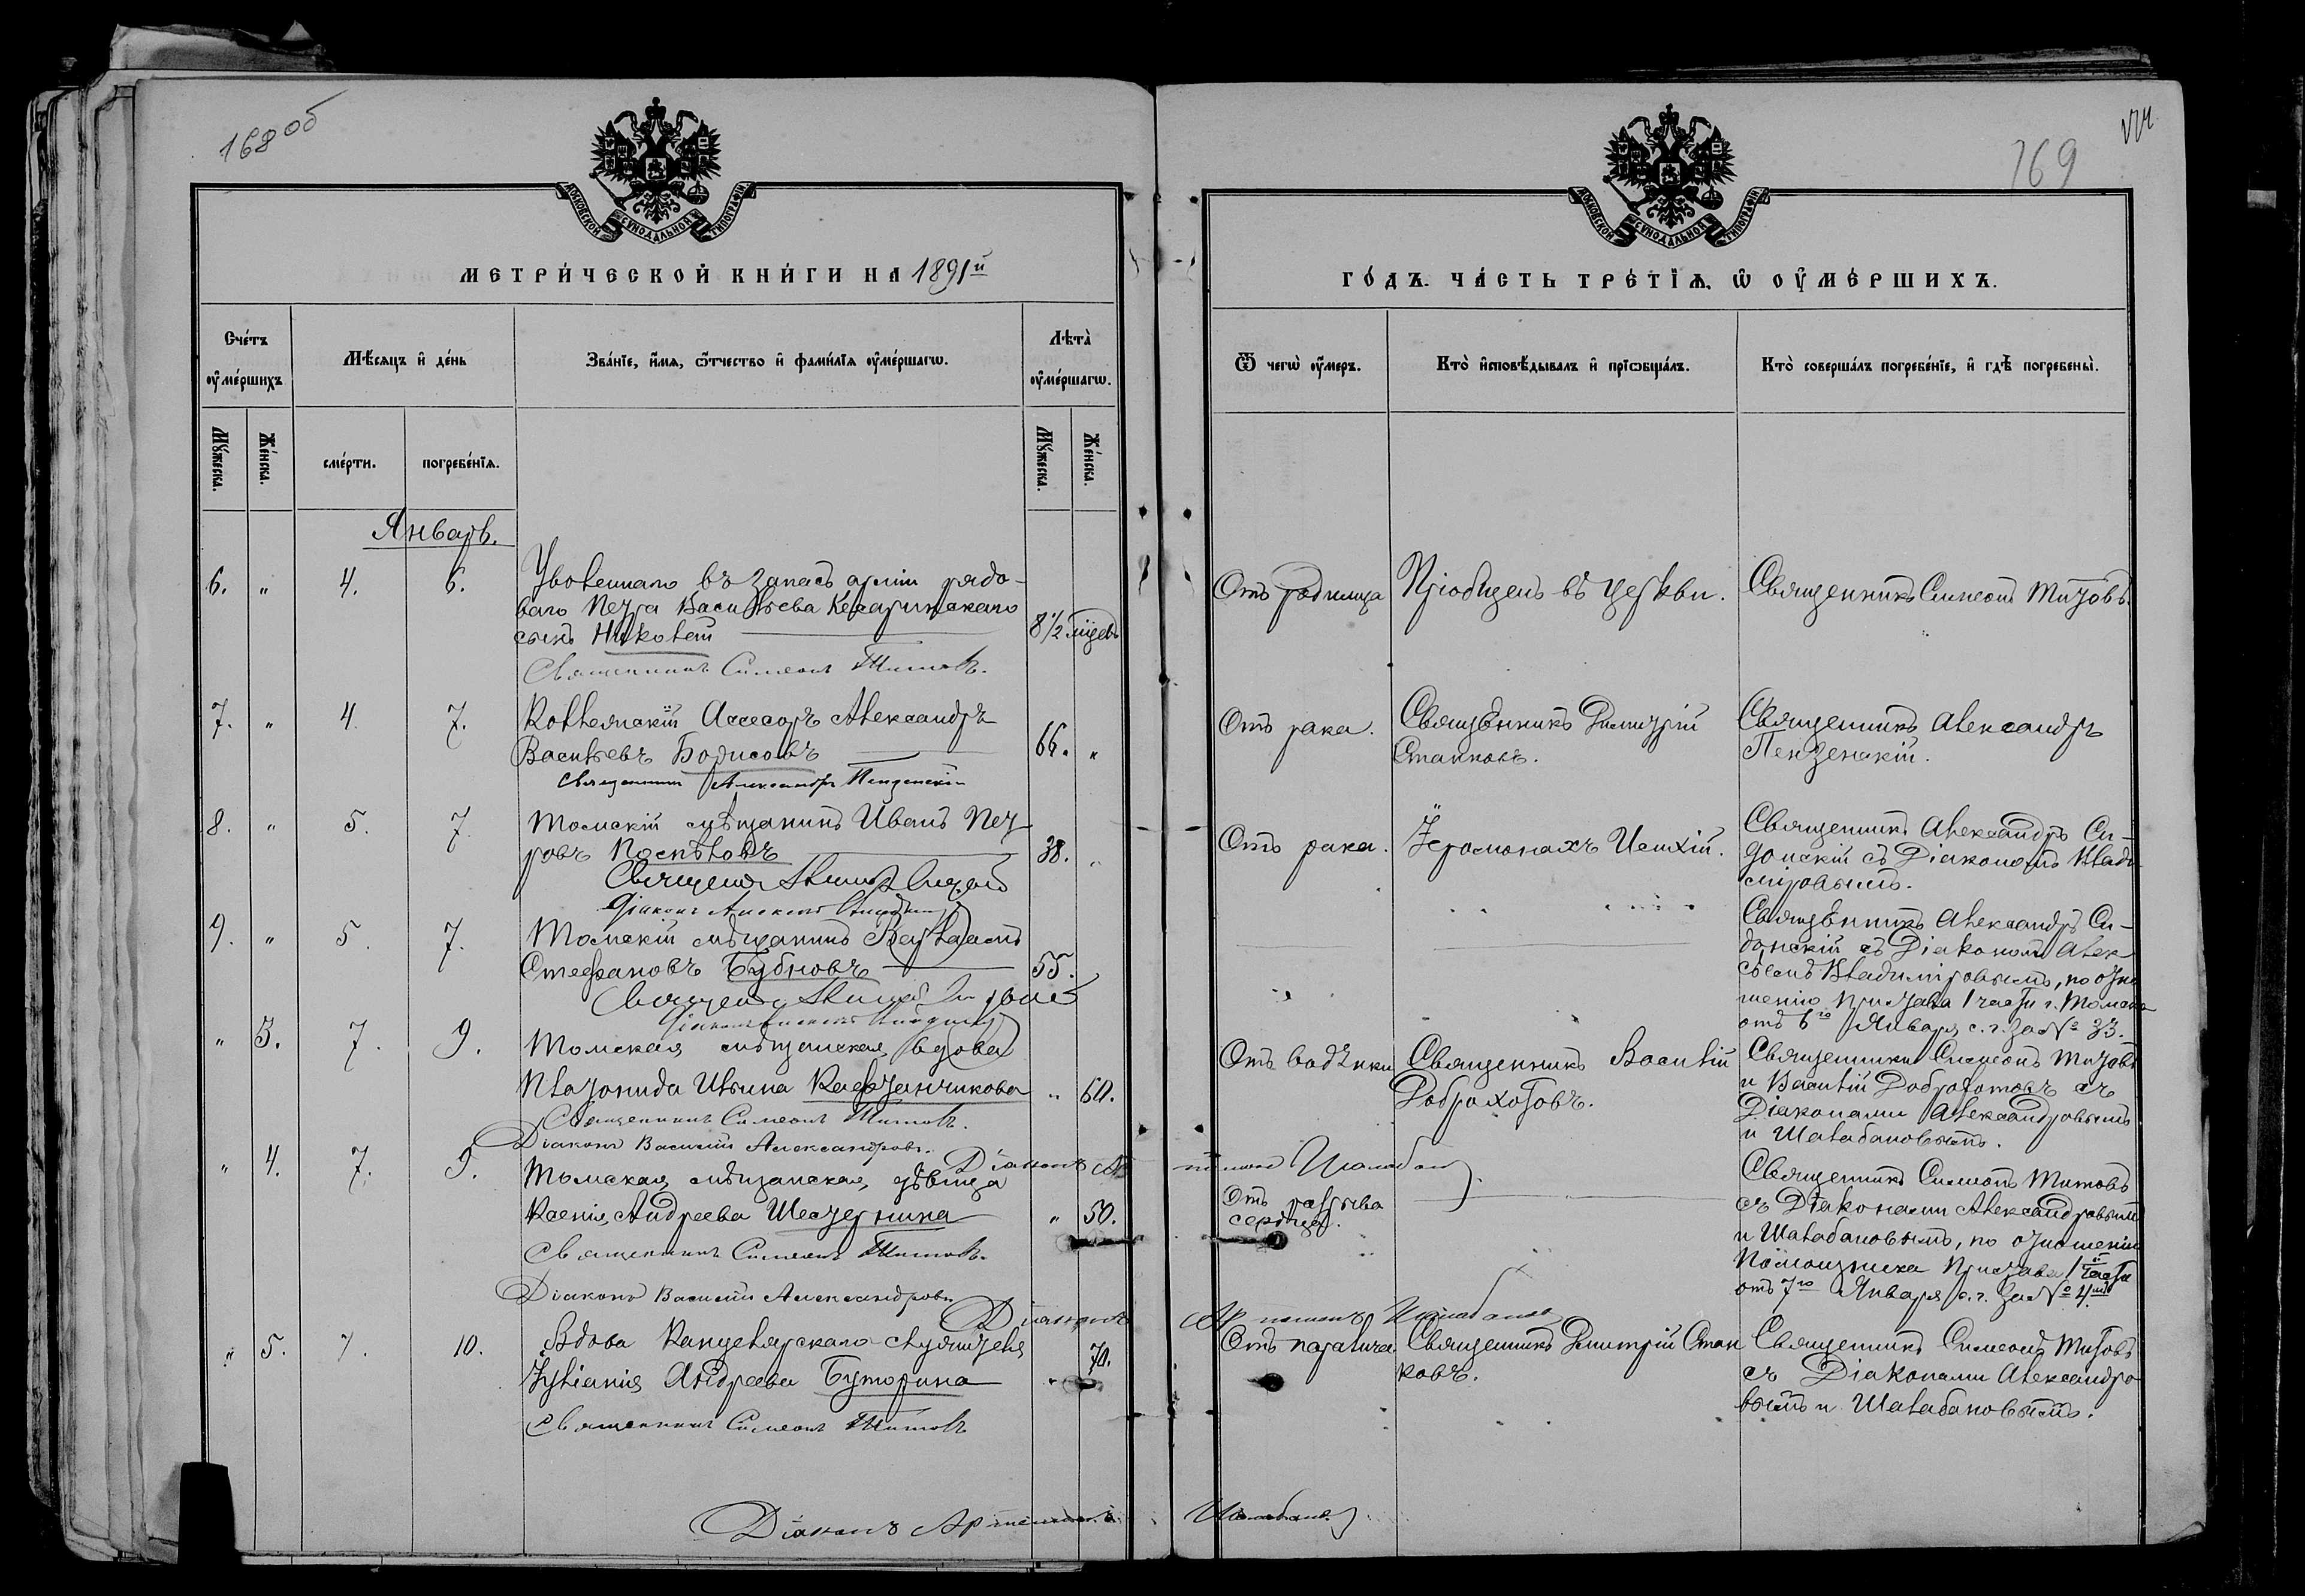 168 об
МОСКОВСКОЙ СѴНОДАЛЬНОЙ ТИПОГРАФІИ
МЕТРИ́ЧЕСКОЙ КНИ́ГИ НА 1891й
Сче́тъ ᲂу҆ме́ршихъ
Мѣ́сяцъ и҆ де́нь
Зва́нїе, и҆́мѧ, ѻ҆́тчество и҆ фами́лїѧ ᲂу҆ме́ршагѡ.
Лѣта̀ ᲂу҆ме́ршагѡ.
Мꙋ́жеска.
Же́нска.
сме́рти.
погребе́нїѧ.
Мꙋ́жеска.
Же́нска.
Январь.
6. " 4. 6.
Уволеннаго въ запасъ арміи рядо-
ваго Петра Васильева Кесаринскаго
сынъ Николай
8 1/2 мцевъ
Священникъ Симеонъ Титовъ.
7. " 4. 7.
Коллежскій Ассесоръ Александръ
Васильевъ Борисовъ
66. "
Священникъ Александръ Пензенскій
8. " 5. 7.
Томскій мѣщанинъ Иванъ Пет-
ровъ Поспѣловъ
38. "
Діаконъ Алексій
9. " 5. 7.
Томскій мѣщанинъ
Стефановъ Бубновъ
55.
" 3. 7. 9.
Томская мѣщанская вдова
Платонида Ильина Кафтанчикова
" 60.
Священникъ Симеонъ Титовъ.
Діаконъ Василій Александровъ.
" 4. 7. 9.
Томская мѣщанская дѣвица
Ксенія Андреева Шестернина
" 50.
Священникъ Симеонъ Титовъ.
Діаконъ Василій Александровъ
" 5. 7. 10.
Вдова Канцелярскаго служителя
Іуліанія Андреева Буторина
" 70.
Священникъ Симеонъ Титовъ
Діаконъ
169
МОСКОВСКОЙ СѴНОДАЛЬНОЙ ТИПОГРАФІИ
ГО́ДЪ. ЧА́СТЬ ТРЕ́ТЇѦ, Ѡ҆ ОУ҆МЕ́РШИХЪ.
Ѿ чегѡ̀ ᲂу҆́меръ.
Кто̀ и҆сповѣ́дывалъ и҆ прїѡбща́лъ.
Кто̀ соверша́лъ погребе́нїе, и҆ гдѣ̀ погребены̀.
Отъ родимца
Пріобщенъ въ церкви.
Священникъ Симеонъ Титовъ.
Отъ рака.
Священникъ Димитрій
Станковъ.
Священникъ Александръ
Пензенскій.
Отъ рака.
Іеромонахъ
Священникъ Александръ Си-
донскій съ Діакономъ Влади-
міровымъ.
Священникъ Александръ Си-
донскій съ Діакономъ Алек-
сѣемъ Владиміровымъ, по отно-
шенію Пристава 1 части г. Томска
отъ 6го Января с. г. за № 33.
Отъ водянки
Священникъ Василій
Доброхотовъ.
Священники Симеонъ Титовъ
и Василій Доброхотовъ съ
Діаконами Александровымъ
и Шалабановымъ.
Отъ разрыва
сердца.
Священникъ Симеонъ Титовъ
съ Діаконами Александровымъ
и Шалабановымъ, по отношенію
Помощника Пристава 1й части
отъ 7го Января с. г. за № 4м
Отъ паралича
Священникъ Димитрій Стан
ковъ.
Священникъ Симеонъ Титовъ
съ Діаконами Александро
вымъ и Шалабановымъ.